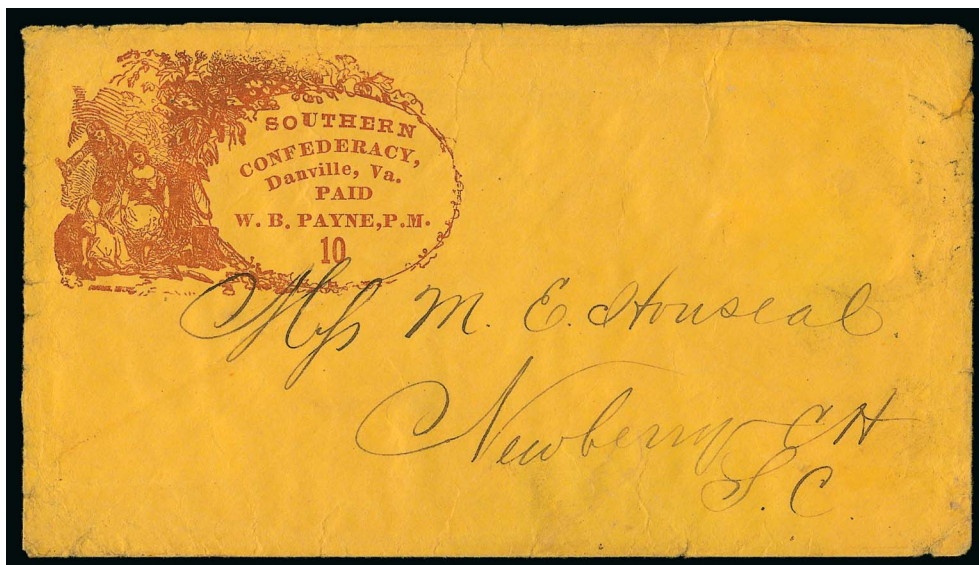 SOUTHERN
CONFEDERACY,
Danville, Va.
PAID
W. B. PAYNE, P.M.
10
Miss M. E. Houseal.
Newberry CH
S. C.